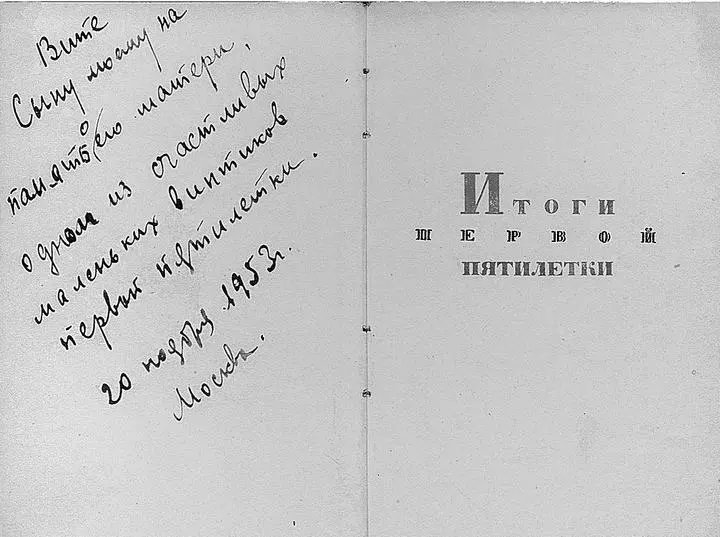 Вите
Сыну моему на
память о его матери,
одном из счастливых
маленьких винтиков
первой пятилетки.
20 ноября 1953 г.
Москва.
Итоги
первой
пятилетки